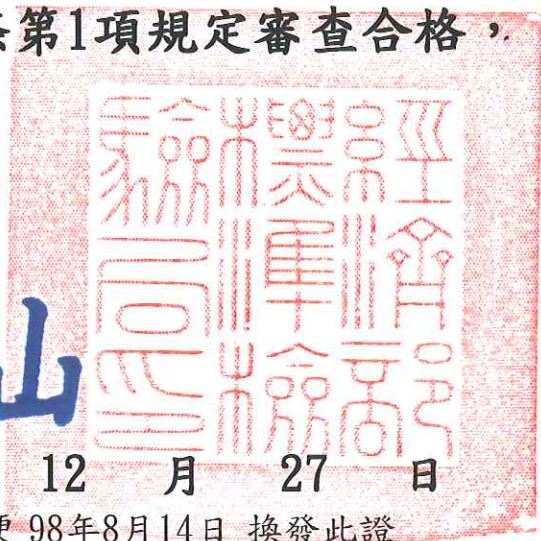 條第1項規定審查合格，
經濟部
標準檢
驗局印
山
12 月 27 日
更 98年8月14日 換發此證